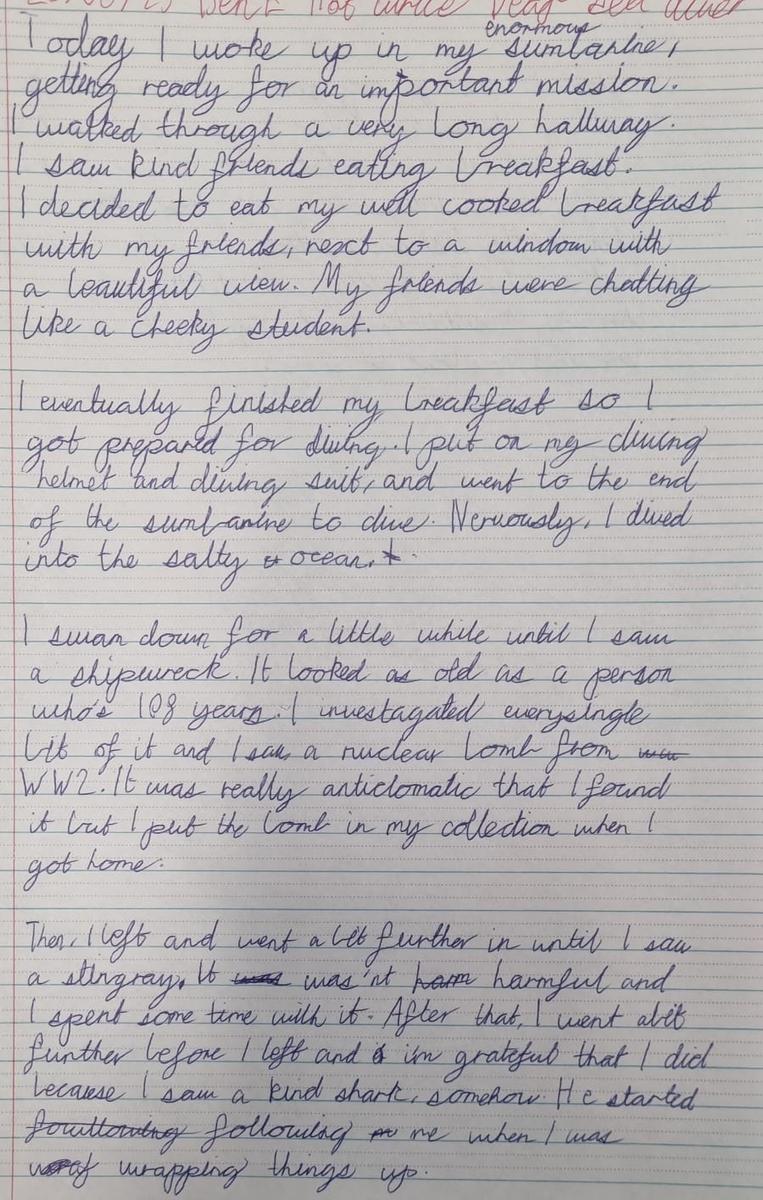 not write
enormous
Today I woke up in my sumbarine,
getting ready for an important mission.
I walked through a very long hallway.
I saw kind friends eating breakfast.
I decided to eat my well cooked breakfast
with my friends, next to a window with
a beautiful view. My friends were chatting
like a cheeky student.
I eventually finished my breakfast so I
got prepared for diving. I put on my diving
helmet and diving suit, and went to the end
of the sumbarine to dive. Nervously, I dived
into the salty ocean.
I swam down for a little while until I saw
a shipwreck. It looked as old as a person
who's 108 years. I investagated everysingle
bit of it and I saw a nuclear bomb from
WW2. It was really anticlomatic that I found
it but I put the bomb in my collection when I
got home.
Then, I left and went a bit further in until I saw
a stingray. It was was'nt harm harmful and
I spent some time with it. After that, I went abit
further before I left and i'm grateful that I did
because I saw a kind shark, somehow. He started
fowllowing following me when I was
wrapping things up.